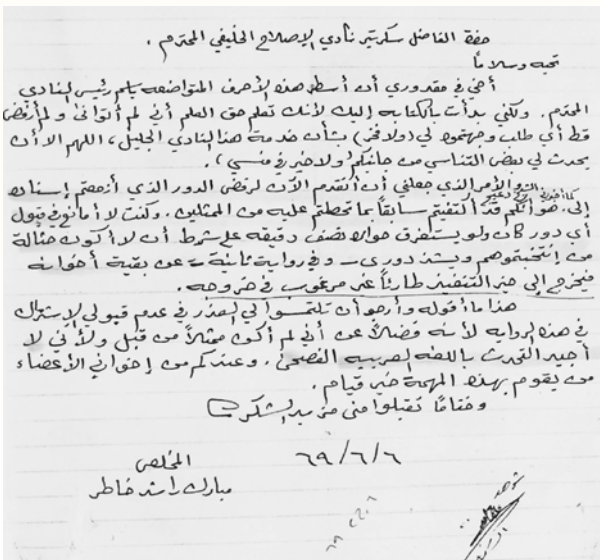 حضرة الفاضل سكرتير نادي الإصلاح الخليفي المحترم .
تحية وسلاماً
أخي في مقدوري أن أسطر هذه الأحرف المتواضعة باسم رئيس النادي
المحترم . ولكني بدأت بالكتابة إليك لأنك تعلم حق العلم أني لم أتوانى ولم أرفض
قط أي طلب وجهتموه لي (ولا فخر) بشأن خدمة هذا النادي الجليل ، اللهم الا أن
يحدث لي بعض التناسي من جانبكم (ولا خير في منسي) .
والأمر الذي جعلني أن أتقدم الآن لرفض الدور الذي أزمعتم إسناده
إلي . هو أنكم قد أكتفيتم سابقاً بما تحصلتم عليه من الممثلين . وكنت لا أمانع في قبول
أي دور كان ولو يستغرق حواره نصف دقيقة على شرط أن لا أكون حثالة
من إنتخبتموهم ويشذ دوري ــ وفي رواية ثانية ــ عن بقية أخوانه
فيخرج إلى حيز التنفيذ طارئاً غير مرغوب في خروجه .
هذا ما أقوله وأرجو أن تلتمسوا لي العذر في عدم قبولي الإشتراك
في هذه الرواية لأنه فضلاً عن أني لم أكون ممثلاً من قبل ولأني لا
أجيد التحدث باللغة العربية الفصحى . وعندكم من إخواني الأعضاء
من يقوم بهذه المهمة خير قيام .
وختاماً تقبلوا مني مزيد الشكر
٦/٦/٦٩
المخلص
مبارك راشد خاطر